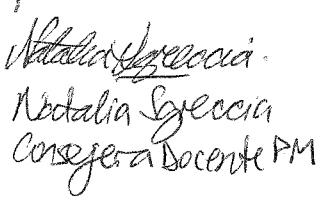 Natalia Sgreccia
Natalia Sgreccia
Consejera Docente PM